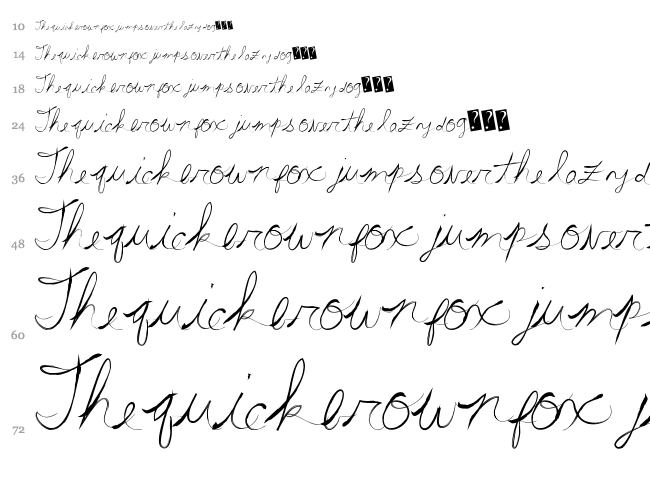 10 The quick brown fox jumps over the lazy dog
14 The quick brown fox jumps over the lazy dog
18 The quick brown fox jumps over the lazy dog
24 The quick brown fox jumps over the lazy dog
36 The quick brown fox jumps over the lazy d
48 The quick brown fox jumps over
60 The quick brown fox jump
72 The quick brown fox j